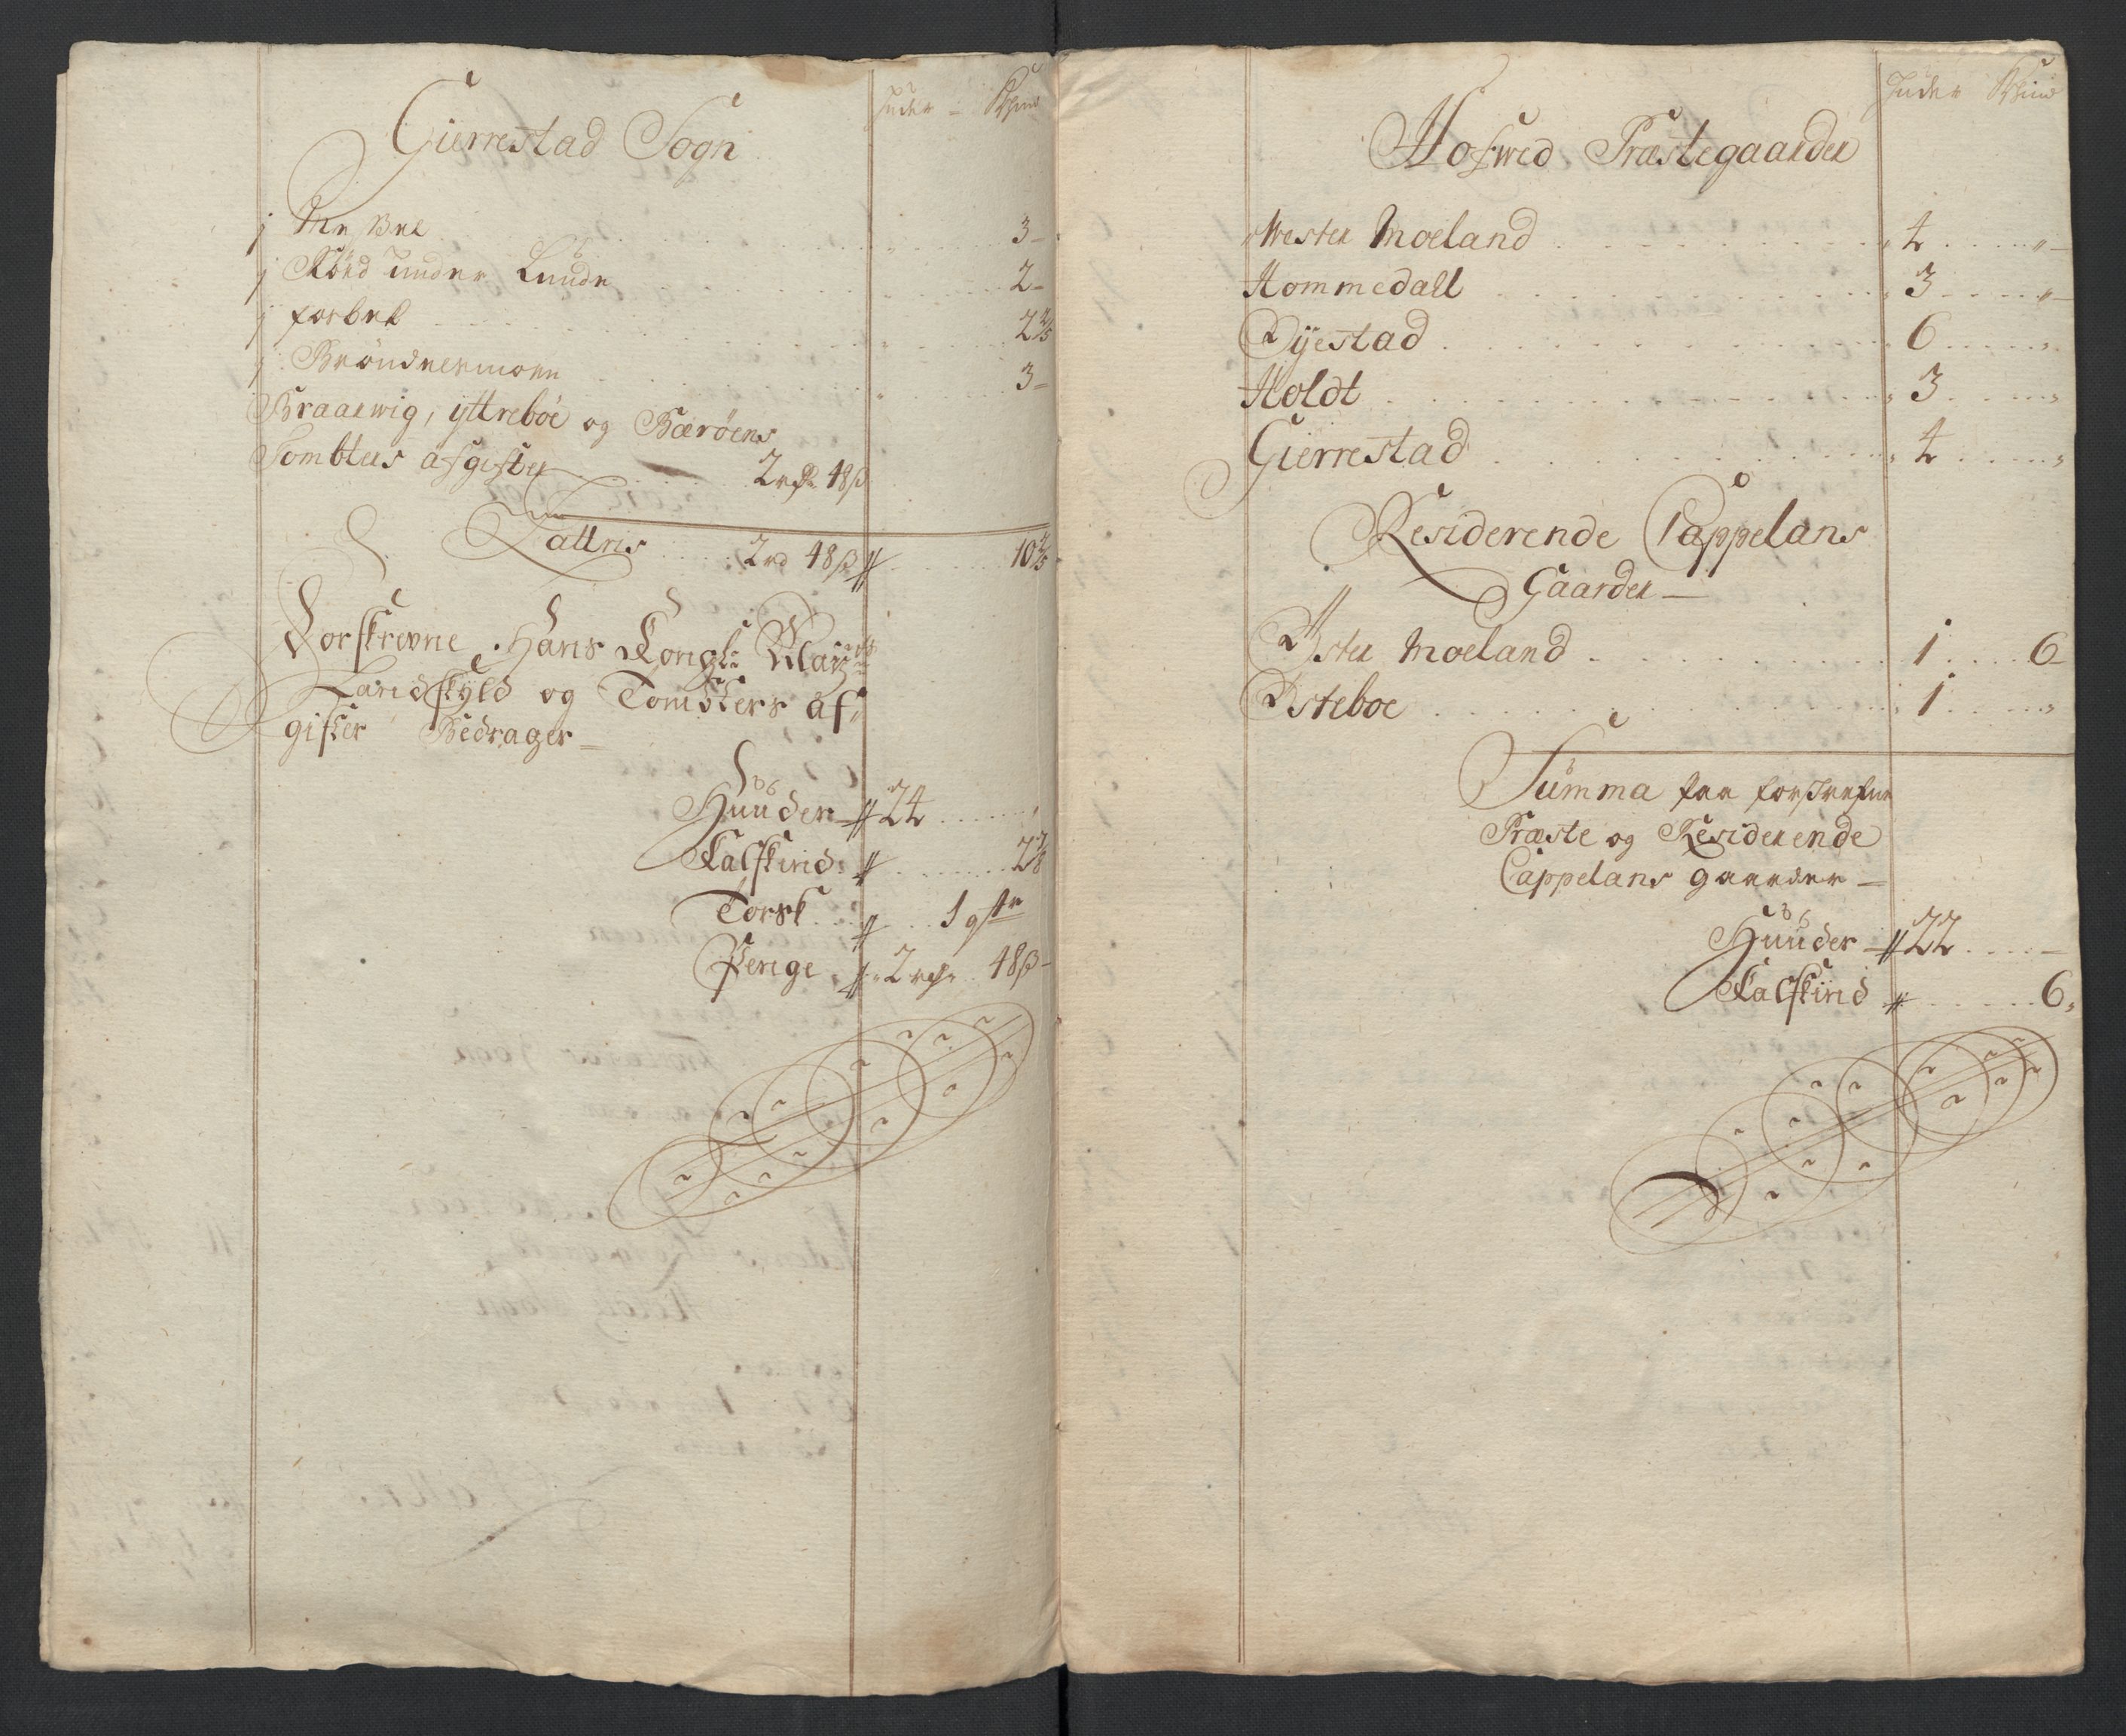 Huder - Skind
Gierrestad Sogn
j 3 -
j Röed under Lunde 2 -
j forbek 2 2/5
j Bröndnermoen 3 -
Braarwig, yttreboe og Bærøens
Tombters afgifter 2 rdr 48 ß
Lattris 2 rd 48 ß // 10 2/5
Forskrevne Hans Kongl: May:tts
Landskyld og Tombters af
gifter Bedrager
Huuder // 24
Kalfskind // 27/8
Torsk // 1 qtr
Penge // 2 rdr 48 ß -
Huder Skind
Hosved Præstegaarden
Wester Moeland 4 "
Hommedall 3 "
Dÿestad 6 "
Holdt 3 "
Gierrestad 4 "
Residerende Cappelans
Gaarder
Øster Moeland 1 6
Østeboe 1 "
Summa paa forskrefne
Præste og Residerende
Cappelans gaarder
Huuder // 22 -
Kalfskind // 6